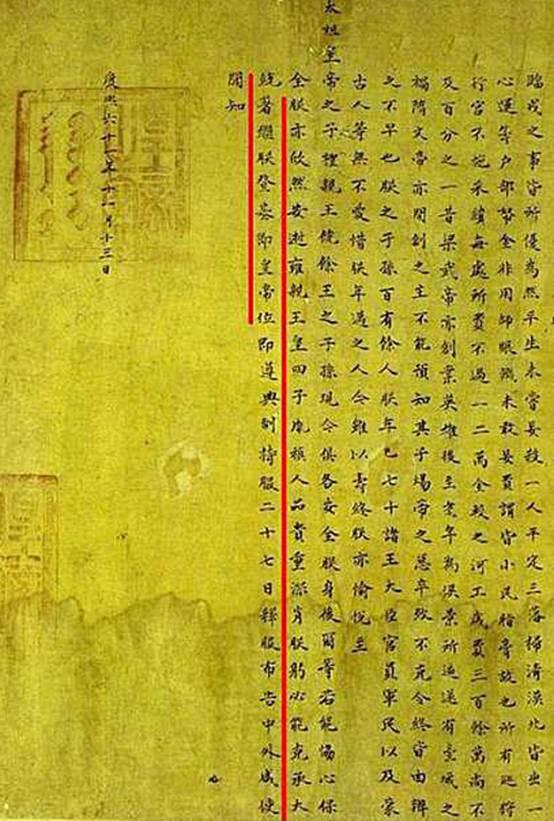 臨戎之事皆所優為然平生未嘗妄殺一人平定三藩掃清漠北皆出一
心運籌戶部帑金非用師賑饑未敢妄費謂皆小民脂膏故也所有巡狩
行宮不施采繢每處所費不過一二萬金較之河工歲費三百餘萬尚不
及百分之一昔梁武帝亦創業英雄後至耄年為侯景所逼遂有臺城之
禍隋文帝亦開創之主不能預知其子煬帝之惡卒致不克令終皆由辨
之不早也朕之子孫百有餘人朕年已七十諸王大臣官員軍民以及蒙
古人等無不愛惜朕年邁之人今雖以壽終朕亦愉悅至
太祖皇帝之子禮親王饒餘王之子孫現今俱各安全朕身後爾等若能恊心保
全朕亦欣然安逝雍親王皇四子胤禛人品貴重深肖朕躬必能克承大
統著繼朕登基即皇帝位即遵典制持服二十七日釋服布告中外咸使
聞知
康熙六十一年十一月十三日